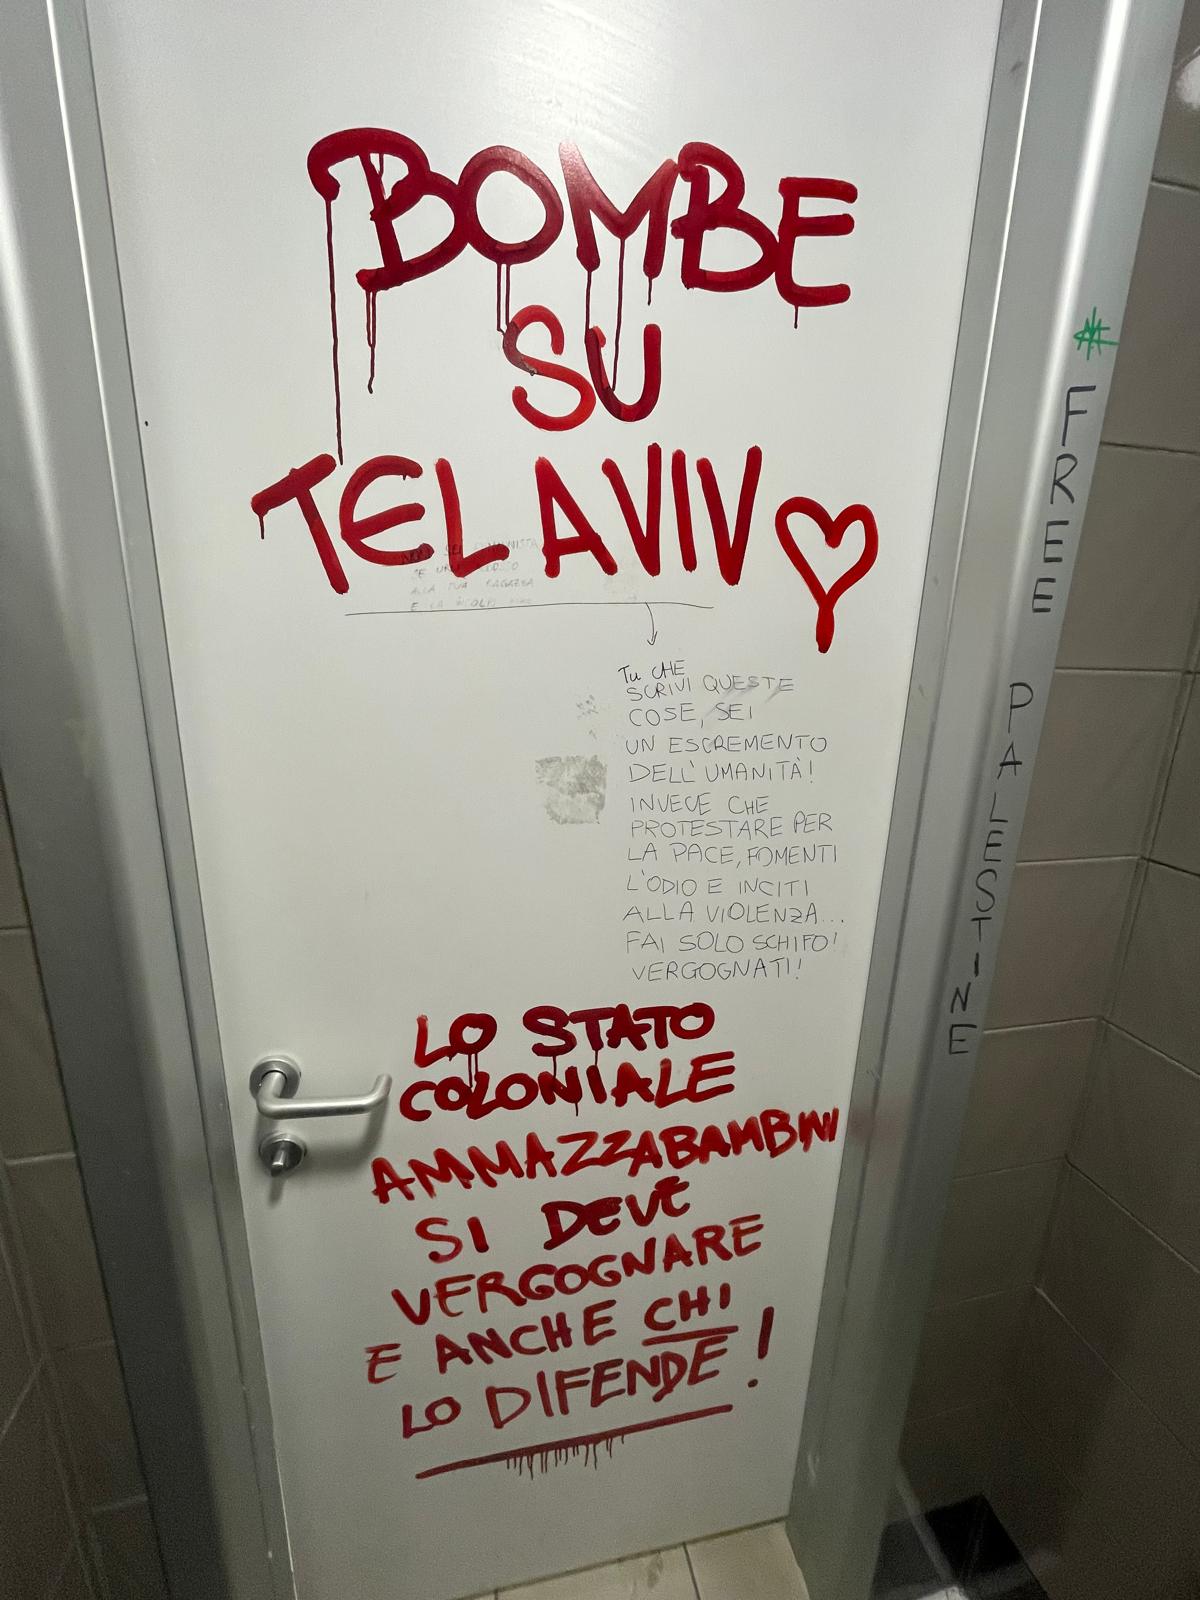 BOMBE
SU
TEL AVIV
NON SEI
SE
ALLA TUA RAGAZZA
E LA
TU CHE
SCRIVI QUESTE
COSE, SEI
UN ESCREMENTO
DELL'UMANITÀ!
INVECE CHE
PROTESTARE PER
LA PACE, FOMENTI
L'ODIO E INCITI
ALLA VIOLENZA...
FAI SOLO SCHIFO!
VERGOGNATI!
LO STATO
COLONIALE
AMMAZZABAMBINI
SI DEVE
VERGOGNARE
E ANCHE CHI
LO DIFENDE!
FREE PALESTINE